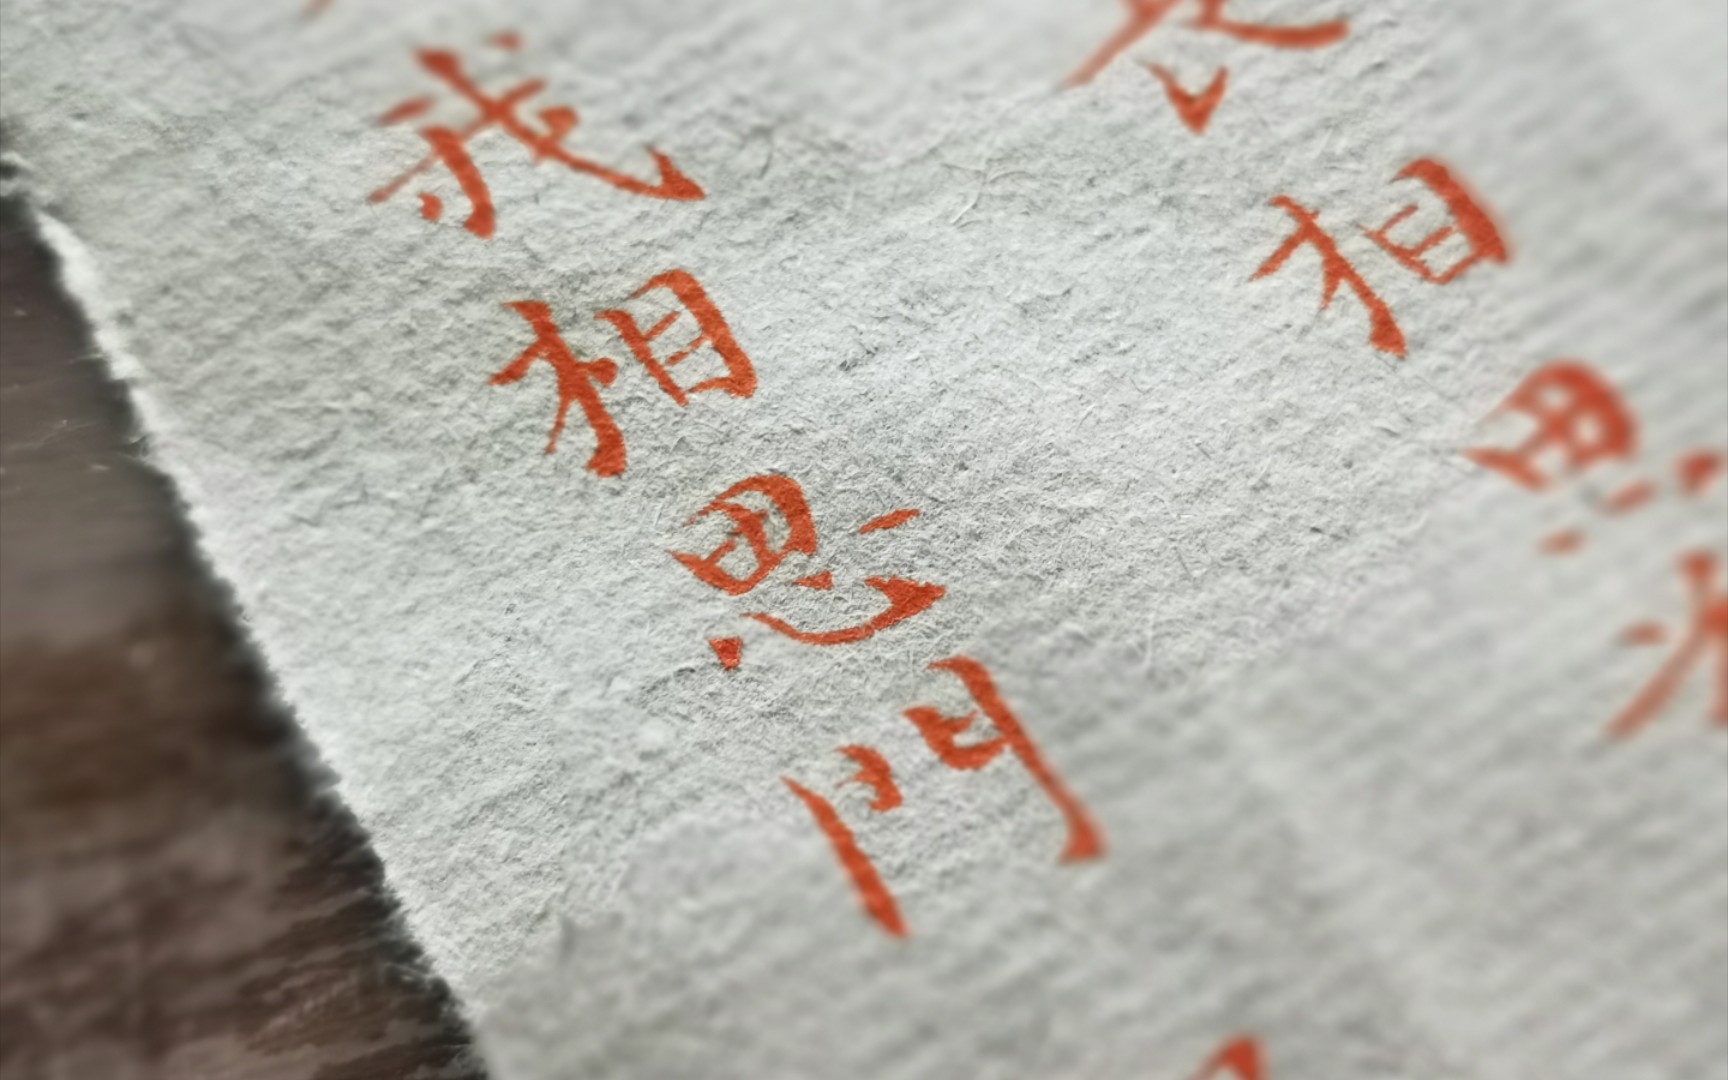 相思
我相思門